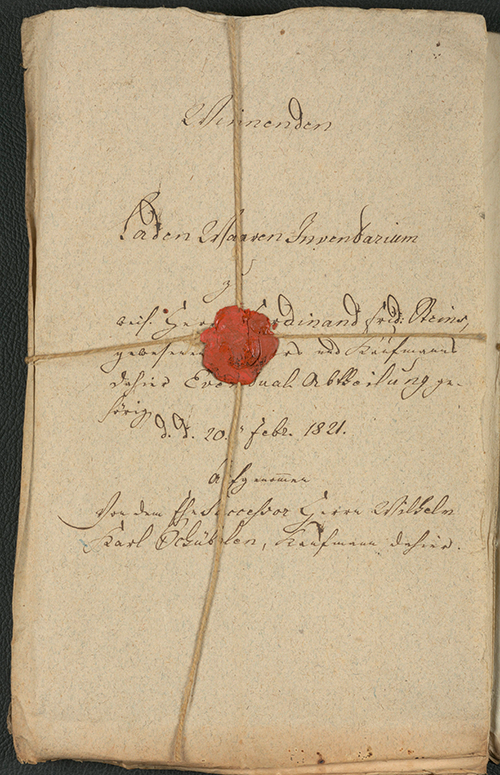 Winnenden
Laden Waaren Inventarium
zu
weil. Herrn Ferdinand Frid: Steins,
gewesenen und Kaufmanns
dahier Eventual Abtheilung ge-
hörig
d. d. 20. Febr. 1821.
Aufgenommen
Von dem Ehe Successor Herrn Wilhelm
Karl Schüblen, Kaufmann dahier.